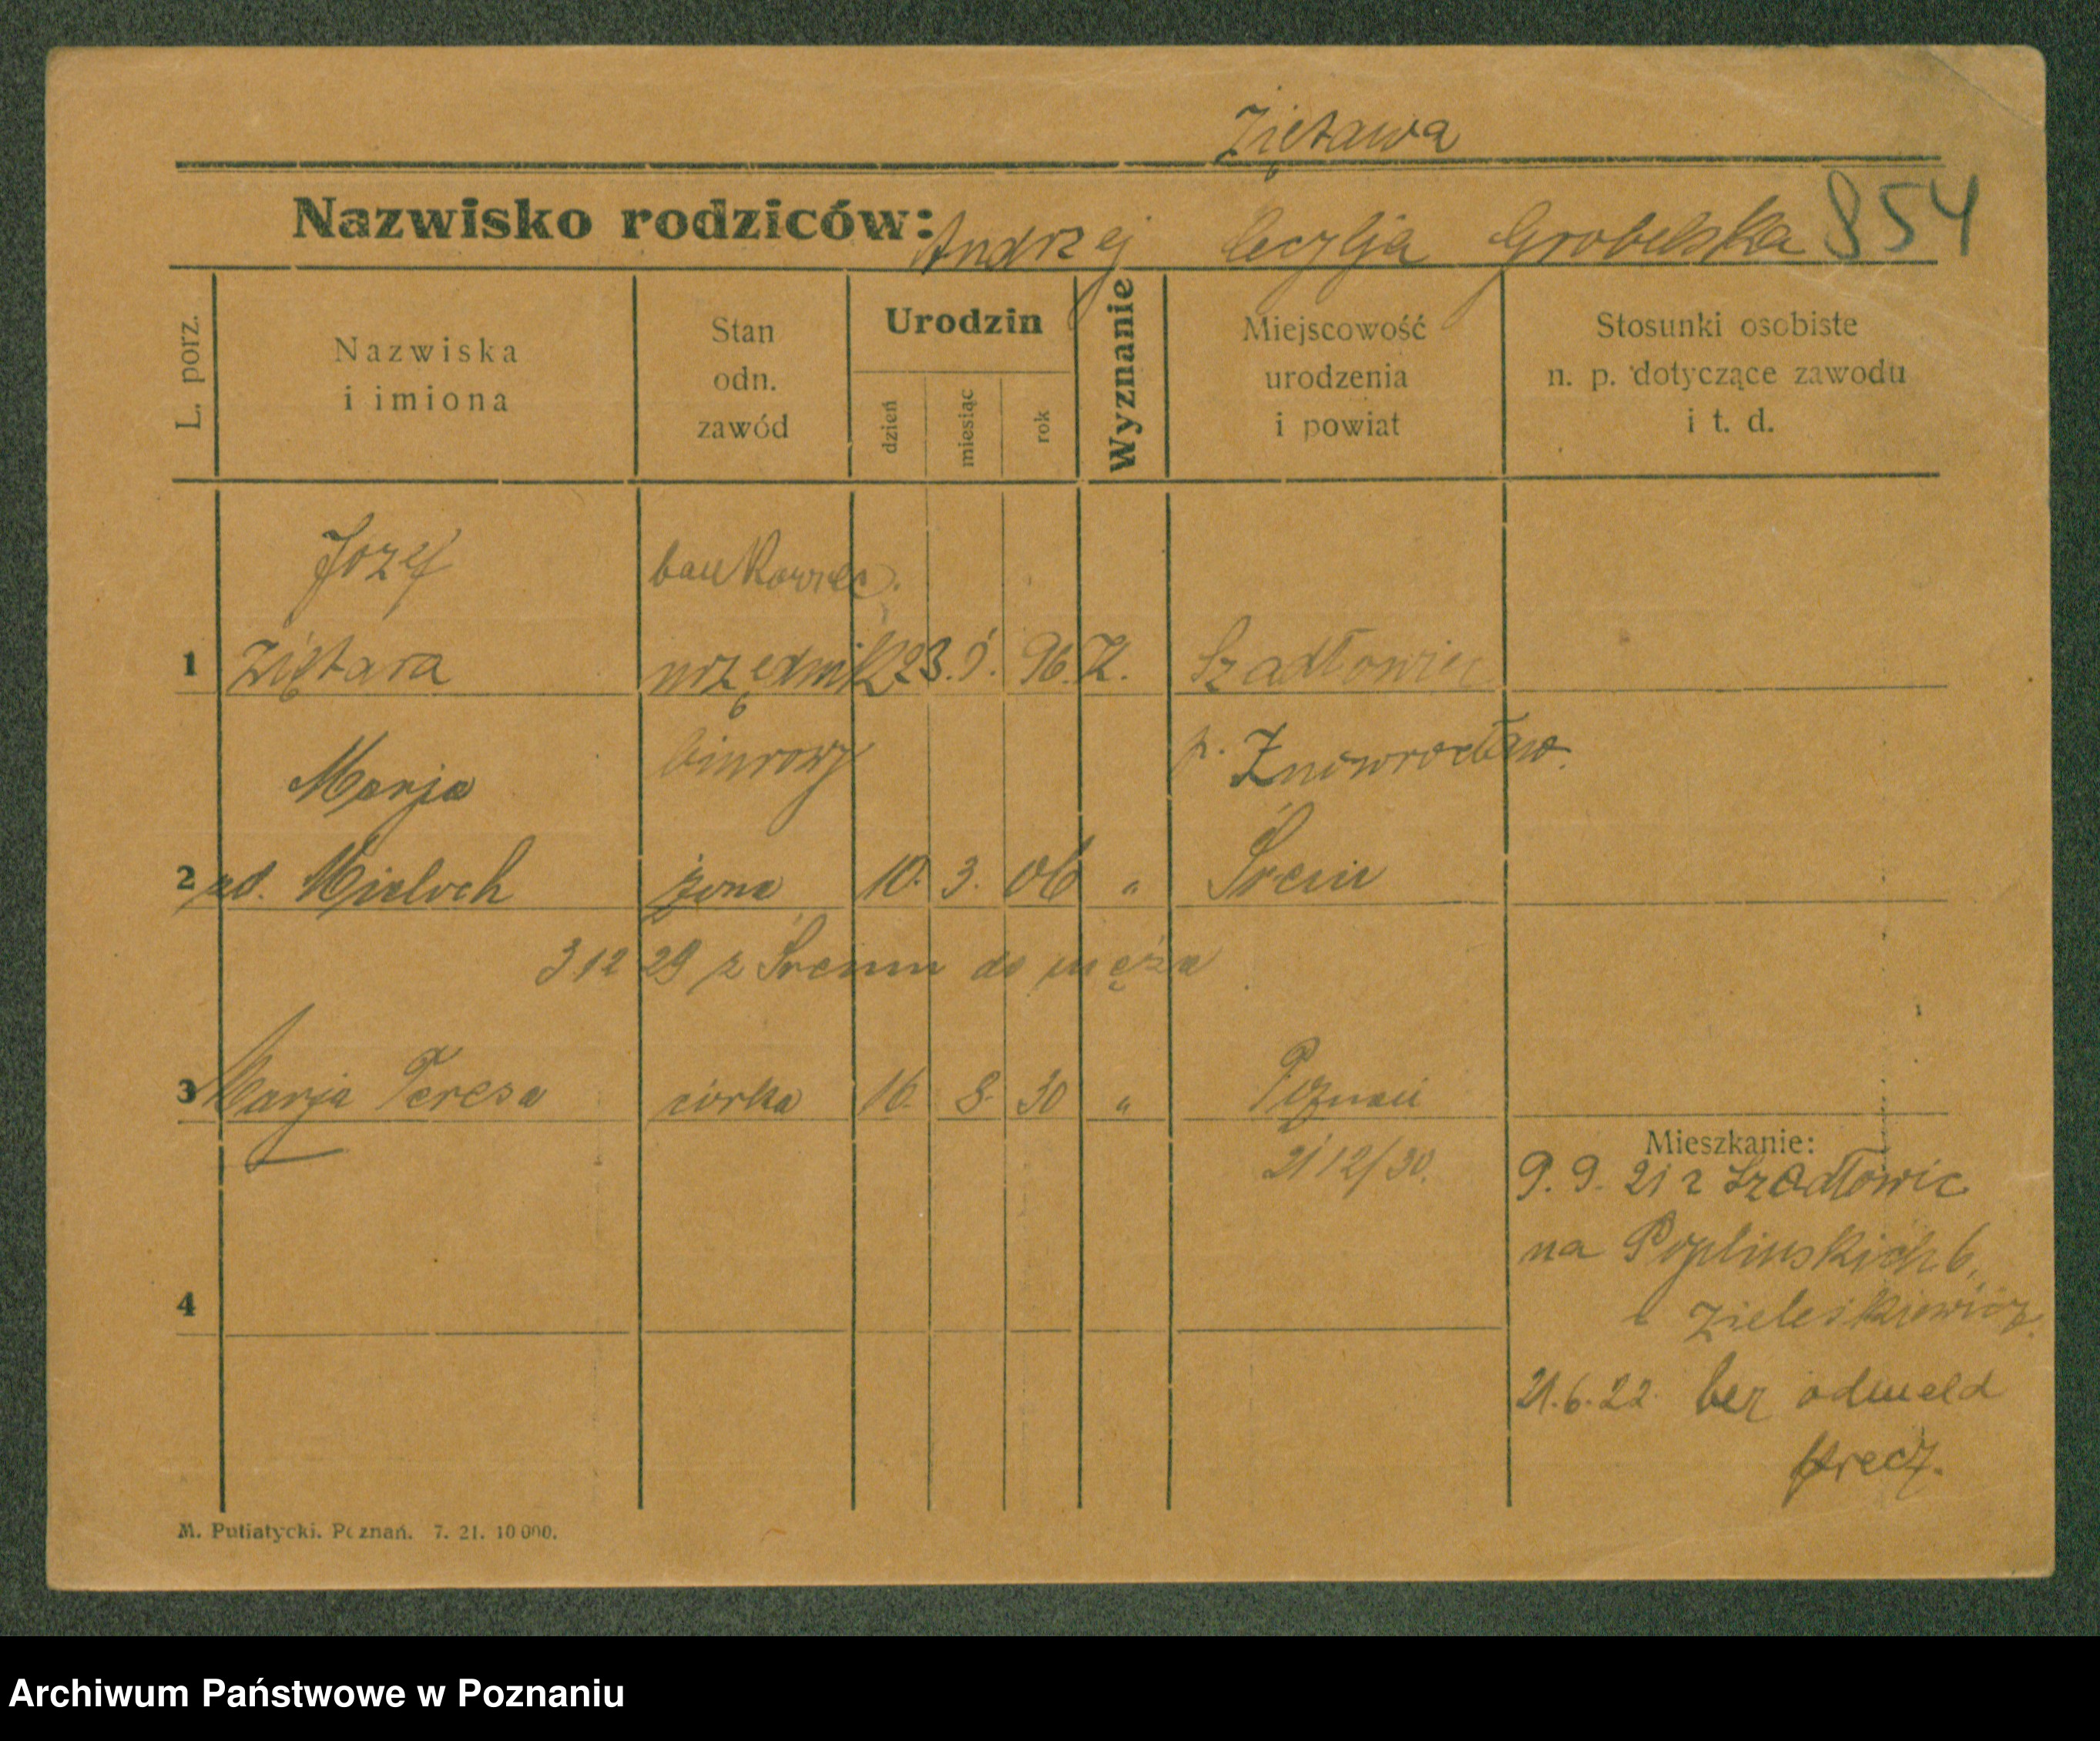 Ziętawa
Nazwisko rodziców: Andrzej Cecylja Grobelska 854
L. porz.
Nazwiska
i imiona
Stan
odn.
zawód
Urodzin
dzień
miesiąc
rok
Wyznanie
Miejscowość
urodzenia
i powiat
Stosunki osobiste
n. p. dotyczące zawodu
i t. d.
Józef bankowiec.
1 Ziętara urzędnik 23. 9. 96. K. Szadłowice
Marja biurowy p. Inowrocław.
2 Mieloch żona 10. 3. 06 " Śrem
3 12 29 z Śremu do męża
3 Marja Teresa córka 16. 8. 30 " Poznań
12/30.
Mieszkanie:
9. 9. 21 z Szadłowic
na Poplinskich 6,
Zieleskiewicz
4
21. 6. 22. bez odmeld
M. Putiatycki. Poznań. 7. 21. 10 000.
Archiwum Państwowe w Poznaniu